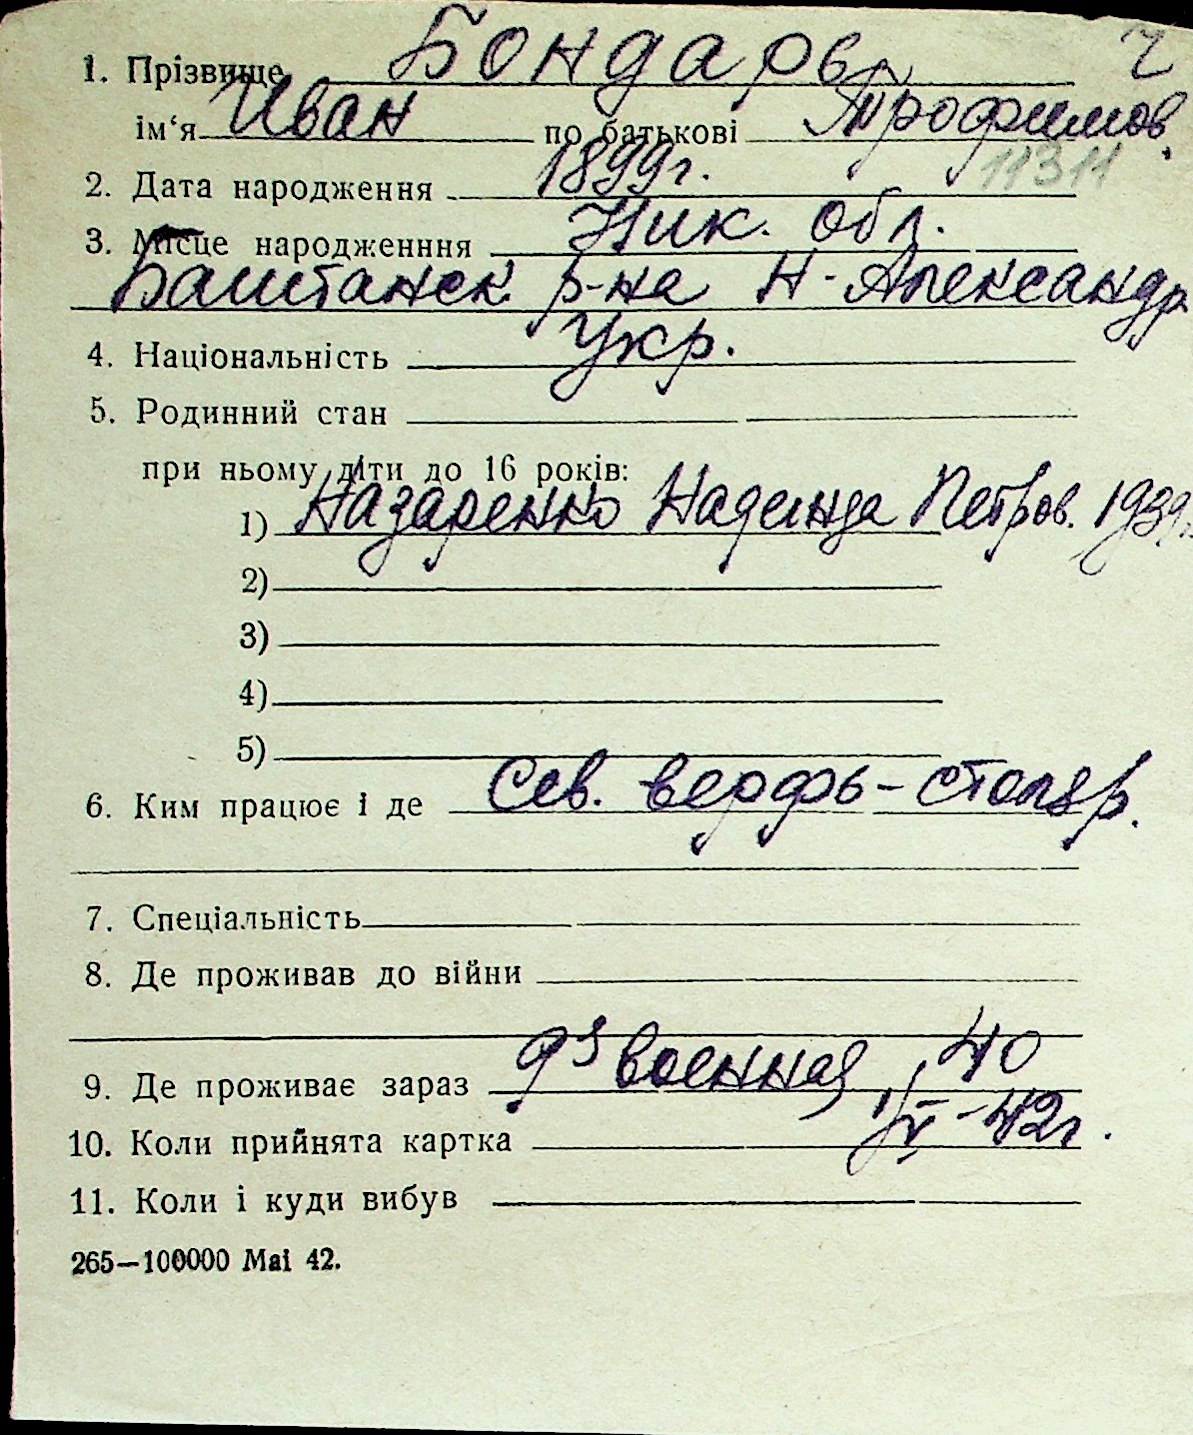 1. Прізвище Бондарь Ч
ім‘я Иван по батькові Трофимов.
2. Дата народження 1899г. 11311
3. Місце народженння Ник. обл.
Баштанск р-на Н-Александр
4. Національність Укр.
5. Родинний стан
при ньому діти до 16 років:
1) Назаренко Надежда Петров. 1939г.
2)
3)
4)
5)
6. Ким працює і де Сев. верфь-столяр.
7. Спеціальність
8. Де проживав до війни
9. Де проживає зараз военная 40
10. Коли прийнята картка 1/IV-42г.
11. Коли і куди вибув
265—100000 Mai 42.